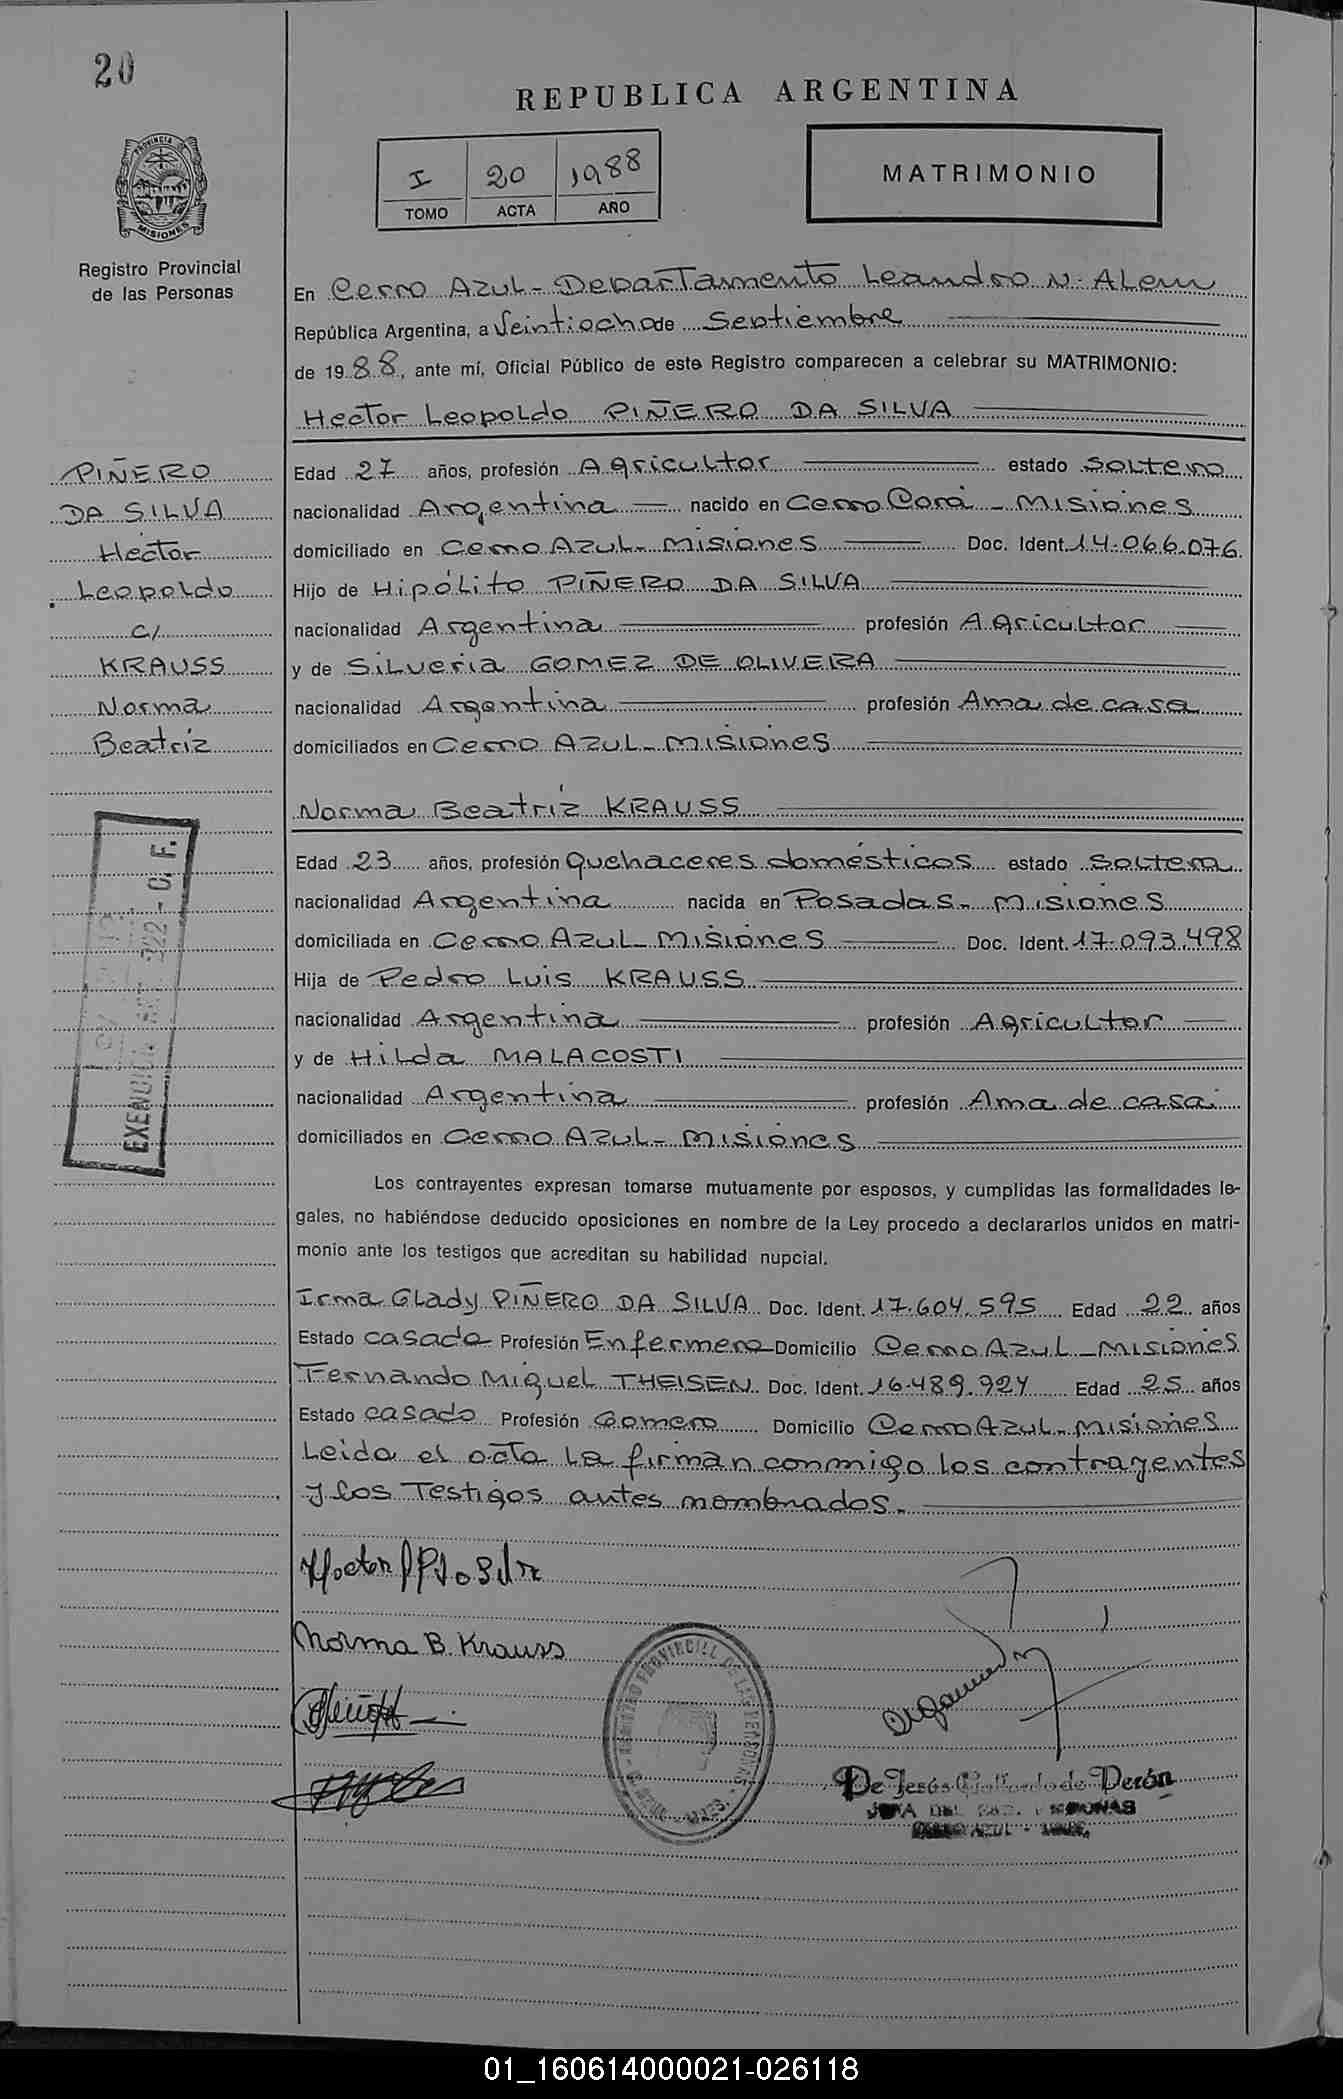 20
REPUBLICA ARGENTINA
I 20 1988
TOMO ACTA AÑO
MATRIMONIO
PROVINCIA DE
MISIONES
Registro Provincial
de las Personas
En Cerro AZUL - Departamento Leandro N. ALem
República Argentina, a Veintiocho de Septiembre
de 1988, ante mí, Oficial Público de este Registro comparecen a celebrar su MATRIMONIO:
Hector Leopoldo PIÑERO DA SILVA
PIÑERO
DA SILVA
Hector
Leopoldo
c/
KRAUSS
Norma
Beatriz
Edad 27 años, profesión Agricultor estado soltero
nacionalidad Argentina nacido en Cerro Corá - Misiones
domiciliado en Cerro AZUL - Misiones Doc. Ident. 14.066.076
Hijo de Hipólito PIÑERO DA SILVA
nacionalidad Argentina profesión Agricultor
y de Silveria GOMEZ DE OLIVEIRA
nacionalidad Argentina profesión Ama de casa
domiciliados en Cerro AZUL - Misiones
Norma Beatriz KRAUSS
Edad 23 años, profesión quehaceres domésticos estado soltera
nacionalidad Argentina nacida en Posadas - Misiones
domiciliada en Cerro AZUL - Misiones Doc. Ident. 17.093.498
Hija de Pedro Luis KRAUSS
nacionalidad Argentina profesión Agricultor
y de Hilda MALACOSTI
nacionalidad Argentina profesión Ama de casa
domiciliados en Cerro AZUL - Misiones
Los contrayentes expresan tomarse mutuamente por esposos, y cumplidas las formalidades le-
gales, no habiéndose deducido oposiciones en nombre de la Ley procedo a declararlos unidos en matri-
monio ante los testigos que acreditan su habilidad nupcial.
Irma Glady PIÑERO DA SILVA Doc. Ident. 17.604.595 Edad 22 años
Estado casada Profesión Enfermera Domicilio Cerro AZUL - Misiones
Fernando Miguel THEISEN Doc. Ident. 16.489.924 Edad 25 años
Estado casado Profesión Gomero Domicilio Cerro AZUL - Misiones
Leida el acta la firman conmigo los contrayentes
y los Testigos antes nombrados.
Norma B. Krauss
REGISTRO PROVINCIAL DE LAS PERSONAS
De Jesús Gallardo de Perón
JEFA DEL PERSONAS
CERRO AZUL
01_160614000021-026118